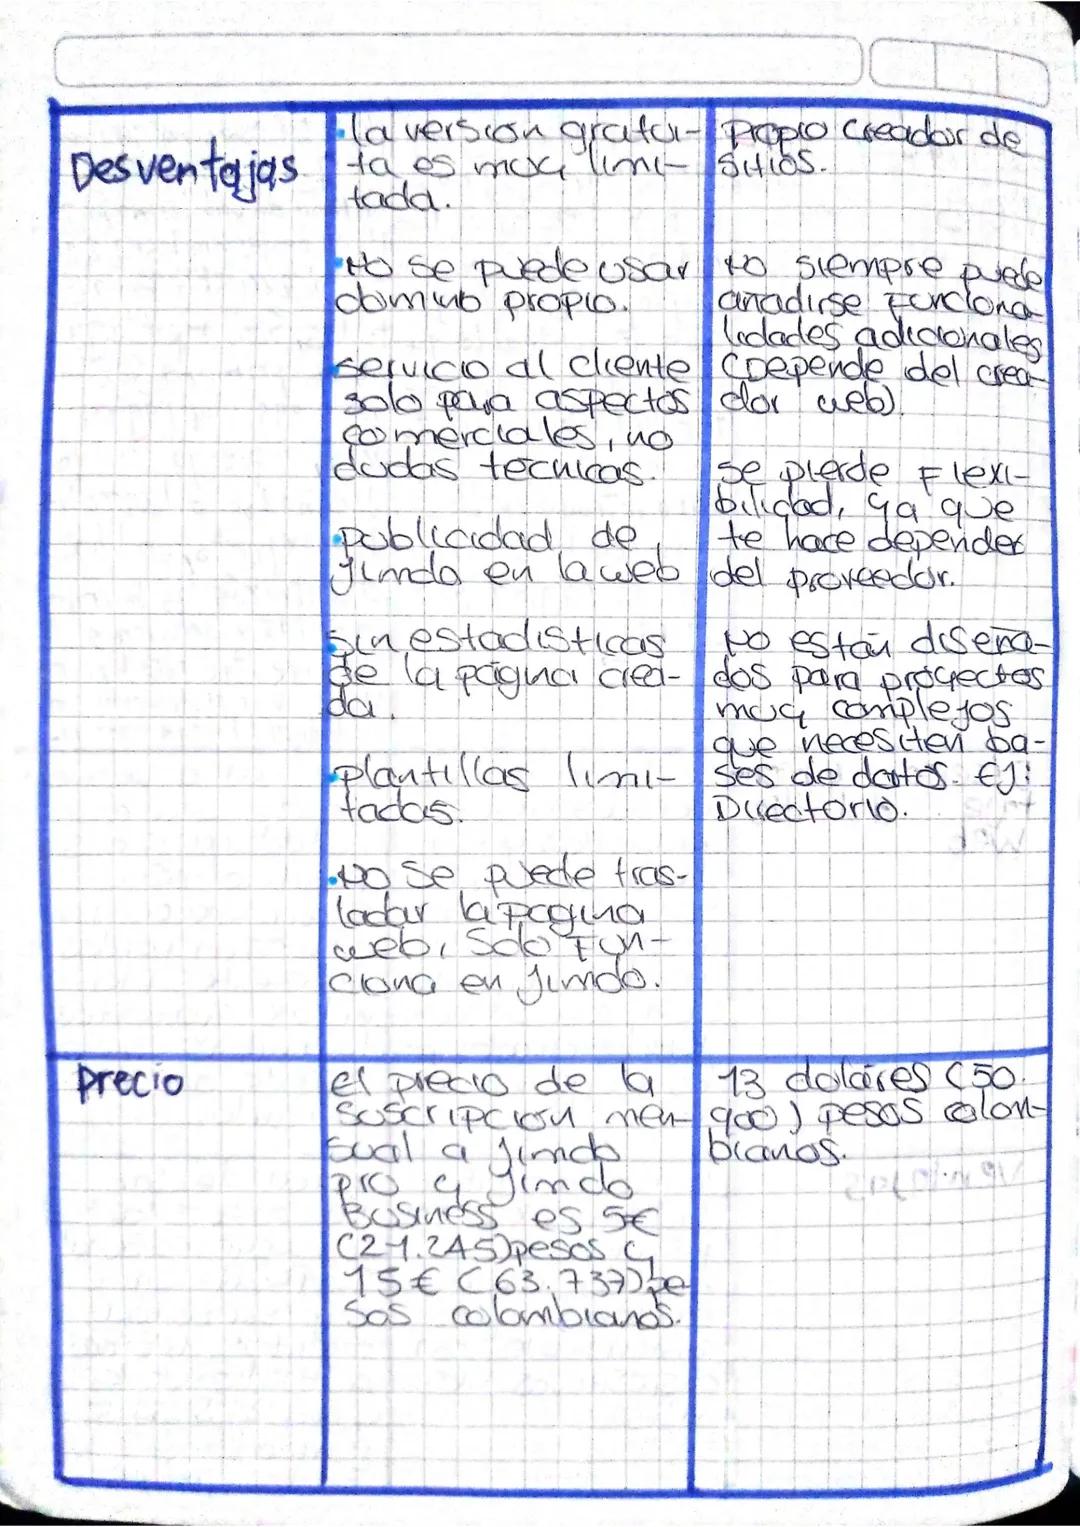 Desventajas
la version gratui-
ta es muy limi-
tada.
No se puede usar
dominio propio.
servicio al cliente
solo para aspectos
comerciales, no
dudas tecnicas.
publicidad de
Jimdo en la web
Sin estadisticas
de la página crea-
da.
plantillas limi-
tadas.
No se puede tras-
ladar la pagina
web, Solo Fun-
ciona en Jimdo.
Propio creador de
sitios.
No siempre puede
añadirse Funciona
lidades adicionales
(Depende del crea-
dor web).
se pierde Flexi-
bilidad, ya que
te hace depender
del proveedor.
No están diseña-
dos para proyectos
muy complejos
que necesiten ba-
ses de datos. EJ:
Directorio.
precio
el precio de la
suscripcion men-
sual a Jimdo
pro y Jimdo
Business es 5€
(21.245) pesos y
15€ (63.737) pe
sos colombianos.
13 dolares (50.
900) pesos colom-
bianos.